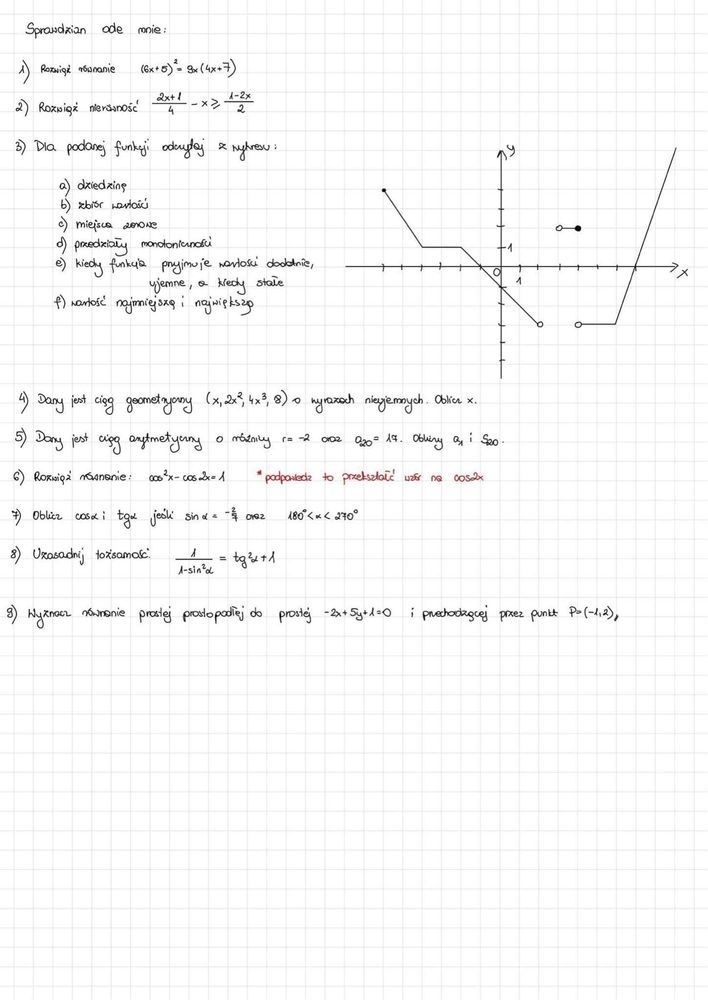 Sprawdzian ode mnie:
1) Rozwiąż równanie (6x+5)² = 9x(4x+7)
2) Rozwiąż nierówność \frac{2x+1}{4} - x ⩾ \frac{1-2x}{2}
3) Dla podanej funkcji odczytaj z wykresu:
a) dziedzinę
b) zbiór wartości
c) miejsca zerowe
d) przedziały monotoniczności
e) kiedy funkcja przyjmuje wartości dodatnie,
ujemne, a kiedy stałe
f) wartość najmniejszą i największą
y
1
0
1
x
4) Dany jest ciąg geometryczny (x, 2x², 4x³, 8) o wyrazach nieujemnych. Oblicz x.
5) Dany jest ciąg arytmetyczny o różnicy r = -2 oraz a₂₀ = 17. Obliczy a₁ i S₂₀.
6) Rozwiąż równanie: cos²x - cos2x = 1 * podpowiedz to przekształć wzór na cos2x
7) Oblicz cosα i tgα jeśli sin α = -\frac{2}{7} oraz 180° < α < 270°
8) Uzasadnij tożsamość: \frac{1}{1-sin²α} = tg²α + 1
9) Wyznacz równanie prostej prostopadłej do prostej -2x+5y+1=0 i przechodzącej przez punkt P=(-1,2),